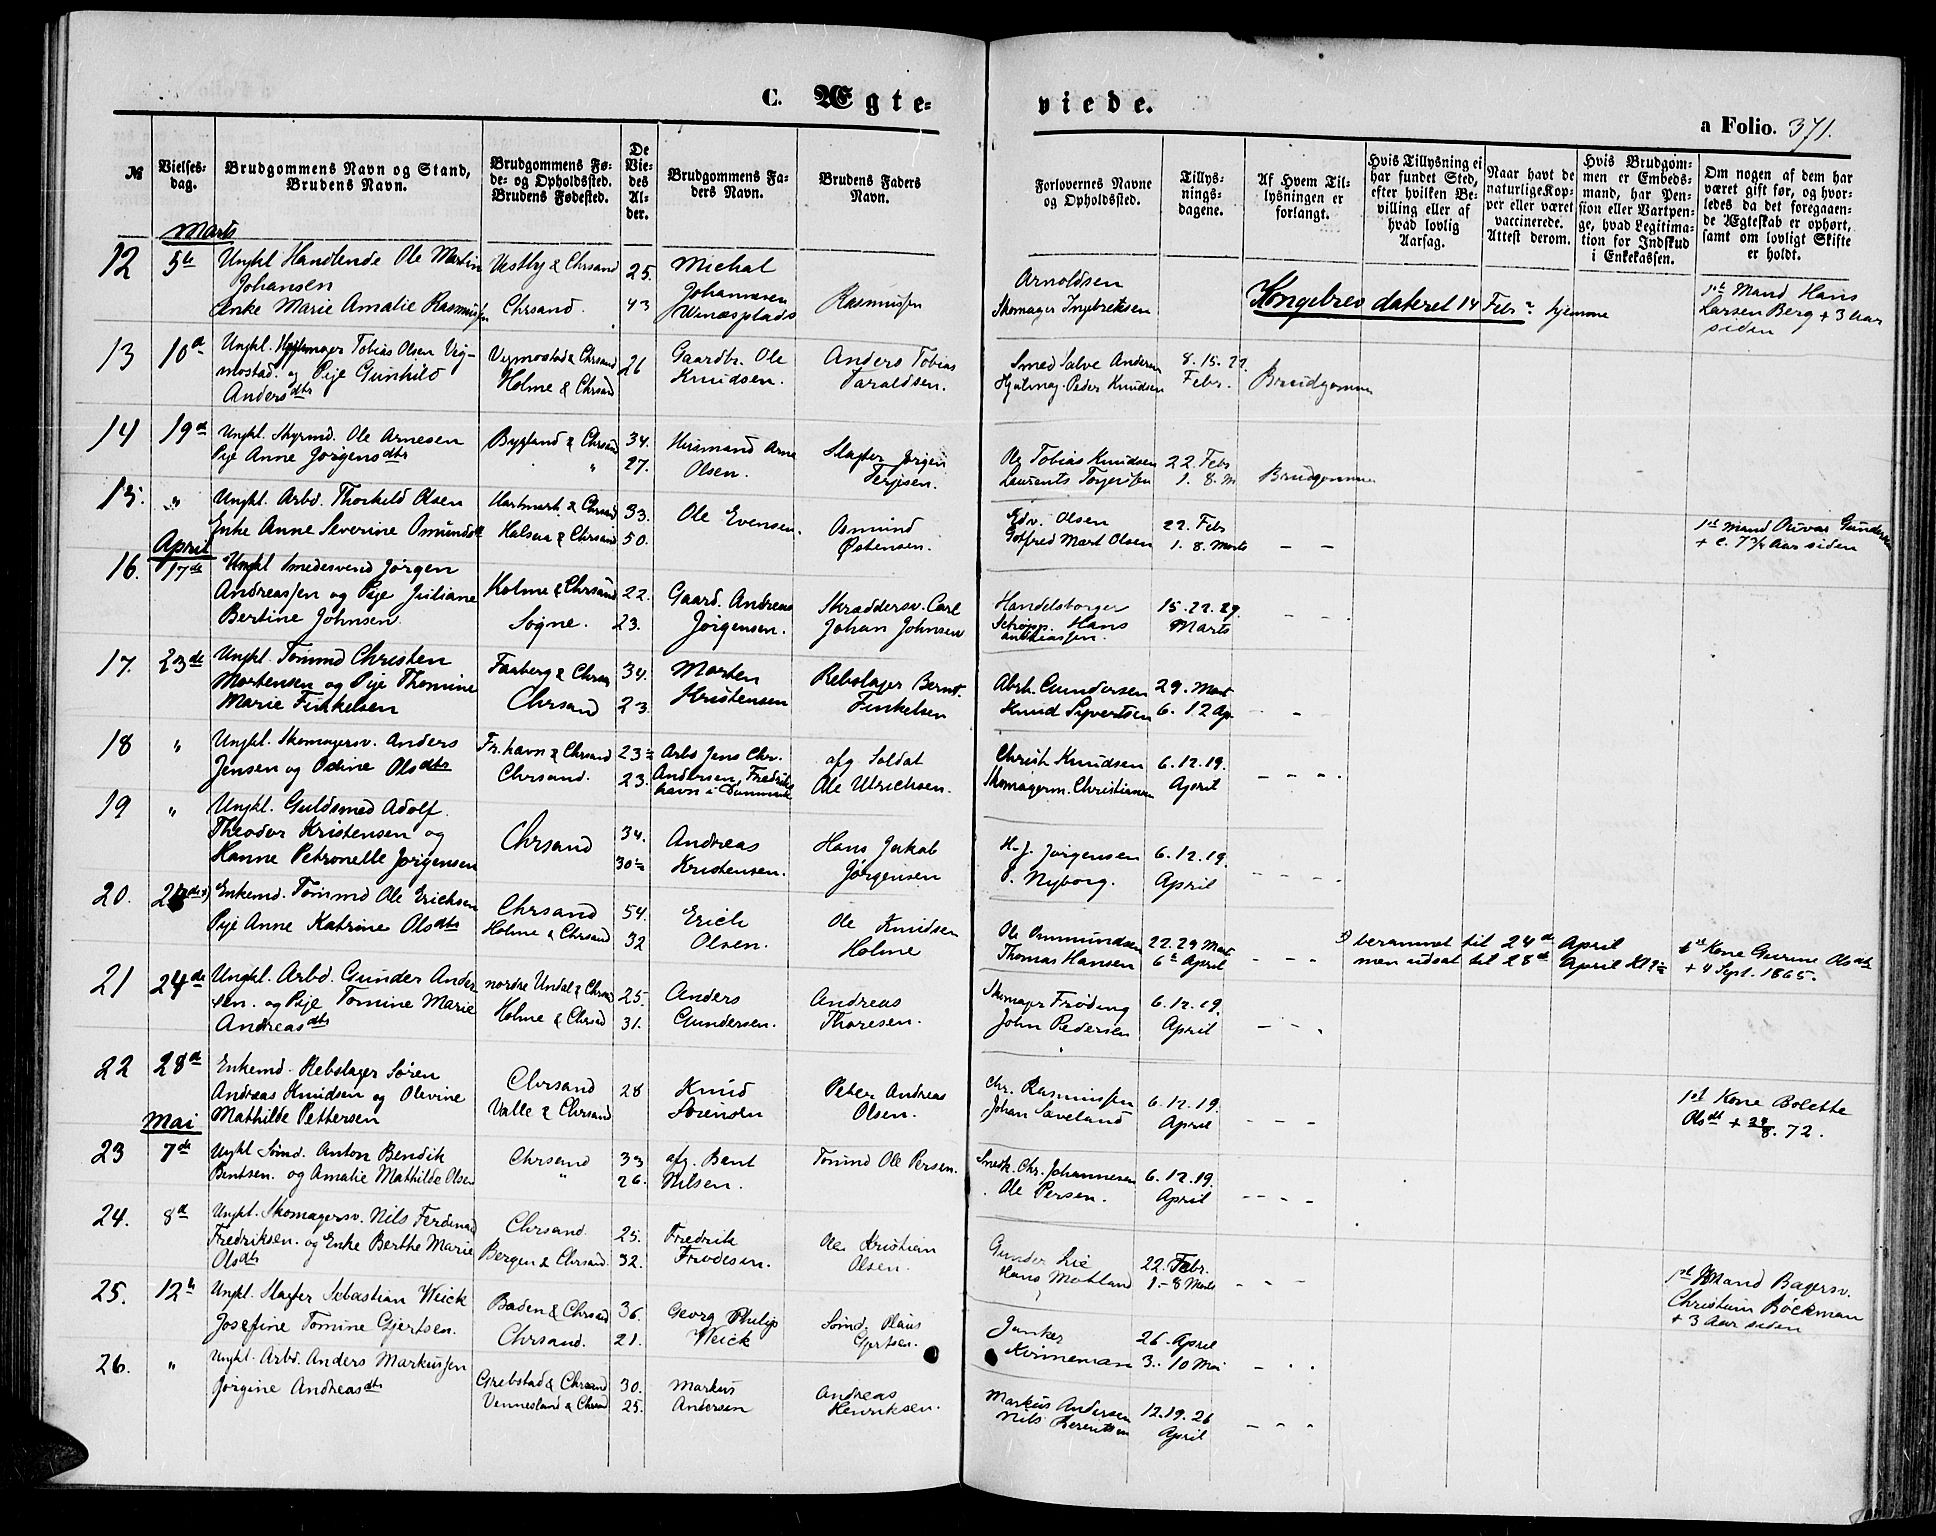 C. Ægte=
viede.
a Folio. 371.
№
Vielses-
dag.
Brudgommens Navn og Stand,
Brudens Navn.
Brudgommens Fø-
de- og Opholdssted.
Brudens Fødested.
De
Vie-
des
Al-
der.
Brudgommens Fa-
ders Navn.
Brudens Faders
Navn.
Forlovernes Navne
og Opholdssted.
Tillys-
nings-
dagene.
Af Hvem Til-
lysningen er
forlangt.
Hvis Tillysning ei
har fundet Sted,
efter hvilken Be-
villing eller af
hvad lovlig
Aarsag.
Naar havt de
naturlige Kop-
per eller været
vaccinerede.
Attest derom.
Hvis Brudgom-
men er Embeds-
mand, har Pen-
sion eller Vartpen-
ge, hvad Legitima-
tion for Indskud
i Enkekassen.
Om nogen af dem har
været gift før, og hvor-
ledes da det foregaaen-
de Ægteskab er ophørt,
samt om lovligt Skifte
er holdt.
Marts
12 5te Ungkl Handlende Ole Martin
Johansen
Enke Marie Amalie Rasmussen
Vestby & Chrsand
Chrsand.
25.
43
Michal
Johannesen
Rasmussen
Arnoldsen
Skomager Ingebretsen
Kongebrev dateret 14 Febr. hjemme
1st Mand Hans
Larsen Berg + 3 Aar
siden
13 10d Ungkl. Tobias Olsen Vig-
mostad. og Pige Gunhild
Andersdtr
Vigmostad & Chrsand
Holme & Chrsand
26
Gaardbr. Ole
Knudsen.
Anders Tobias
Taraldsen.
Smed Salve Andersen
Hjulmag. Peder Knudsen
8. 15. 22.
Febr.
Brudgommen
14 19d Ungkl. Styrmd. Ole Arnesen
Pige Anne Jørgensdtr
Bygland & Chrsand
"
34.
27.
Husmand Arne
Olsen.
Slagter Jørgen
Terjesen.
Ole Tobias Knudsen
Laurents Torgersen
22. Febr
1. 8. M
Brudgommen
15. " Ungkl. Arbd. Thorkild Olsen
Enke Anne Severine Osmundsdtr
Hartmark. & Chrsand
Halsaa & Chrsand
33.
50.
Ole Evensen.
Osmund
Østensen.
Edv. Olsen
Gotfred Mart Olsen
22. Febr
1. 8. Marts
- -
1st Mand Gundersen
+ c. 7 1/2 Aar siden
April
16. 17de Ungkl Smedesvend Jørgen
Andreassen og Pige Juliane
Bertine Johnsen.
Holme & Chrsand
Sogne.
22.
23.
Gaard. Andreas
Jørgensen.
Skræddersv. Carl
Johan Johnsen
Handelsborger
Hans
Andreassen.
15. 22. 29.
Marts
- -
17. 23de Ungkl. Tømmd Christen
Mortensen og Pige Thomine
Marie Finkelsen
Faaberg & Chrsan
Chrsand
34.
23.
Morten
Kristensen
Rebslager Bernt.
Finkelsen
Abrh. Gundersen
Knud Syvertsen
29. Mart
6. 12 Ap
- - -
18 " Ungkl. Skomagersv. Anders
Jensen og Odine Olsdtr
Fr.havn & Chrsand
Chrsand.
23
23.
Arbd Jens Chr.
Andersen, Fredriks
havn i Danmark
afg Soldat
Ole Ulrichsen.
Christ. Knudsen
Skomagerm. Christiansen
6. 12. 19.
April
- - - -
19 " Ungkl. Guldsmed Adolf
Theodor Kristensen og
Hanne Petronelle Jørgensen
Chrsand
34.
30
Andreas
Kristensen.
Hans Jakob
Jørgensen
H. J. Jørgensen
P. Nyborg.
6. 12. 19.
April
- - - -
20. Enkemd. Tømmd Ole Erichsen
Pige Anne Katrine Olsdtr
Chrsand
Holme & Chrsand
54.
32
Erich
Olsen.
Ole Knudsen
Holme
Ole Ommundsen
Thomas Hansen
22. 29 Mart
6 April
- - -
berammet til 24de April
men udsat til 28de April
1st Kone Gurine Olsdtr
+ 4 Sept. 1865.
21 24de Ungkl. Arbd. Gunder Ander
sen. og Pige Tomine Marie
Andreasdtr
nordre Undal & Chrsand
Holme & Chrsand
25.
31.
Anders
Gundersen.
Andreas
Thoresen.
Skomager Frøding
John Pedersen
6. 12. 19.
April
- - -
22 28d Enkemd. Rebslager Søren
Andreas Knudsen og Olevine
Mathilde Pettersen
Chrsand
Valle & Chrsand
28
Knud
Sørensen
Peter Andreas
Olsen.
Chr. Rasmussen
Johan Saveland
6. 12. 19.
April
- - -
1st Kone Bolette
Olsdt + 29/8. 72.
Mai
23 7de Ungkl Sømd. Anton Bendik
Bentsen. og Amalie Mathilde Olsen
Chrsand
"
33
26.
afg. Bent
Nilsen.
Tømmd Ole Persen.
Smedk. Chr. Johannesen
Ole Persen.
6. 12. 19.
April
- - - -
24. 8d Ungkl. Skomagersv. Nils Ferdinand
Fredriksen. og Enke Berthe Marie
Olsdtr
Chrsand.
Bergen & Chrsand
25.
32.
Fredrik
Friedesen.
Ole Kristian
Olsen.
Gunder Lie
Hans Motland
22. Febr.
1.- 8 Marts
- - -
1st Mand Bagersv.
Christian Böckman
+ 3 Aar siden
25. 12te Ungkl. Slagter Sebastian Weick
Josefine Tomine Gjertsen.
Baden & Chrsand
Chrsand.
36.
21.
Georg Philip
Weick
Sømd. Klaus
Gjertsen.
Junker
Kinneman
26. April
3. 10 Mai
- - -
26. " Ungkl. Arbd. Anders Markussen
Jørgine Andreasdtr
Grebstad & Chrsand
Vennesland & Chrsand
30.
25.
Markus
Andersen
Andreas
Henriksen.
Markus Andersen
Nils Berentsen
12. 19. 26
April
- - -